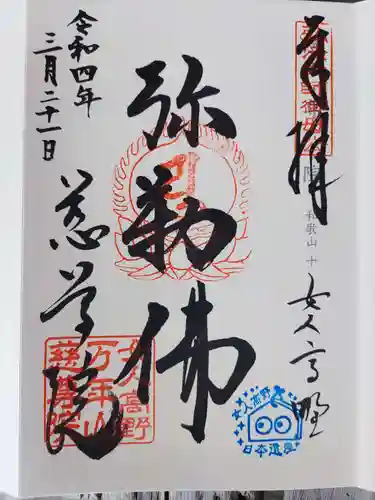 奉拝
女人高野
弥勒佛
令和四年
三月二十一日
慈尊院
女人高野
万年山
慈尊院
和歌山 十
女人高野
日本遺産